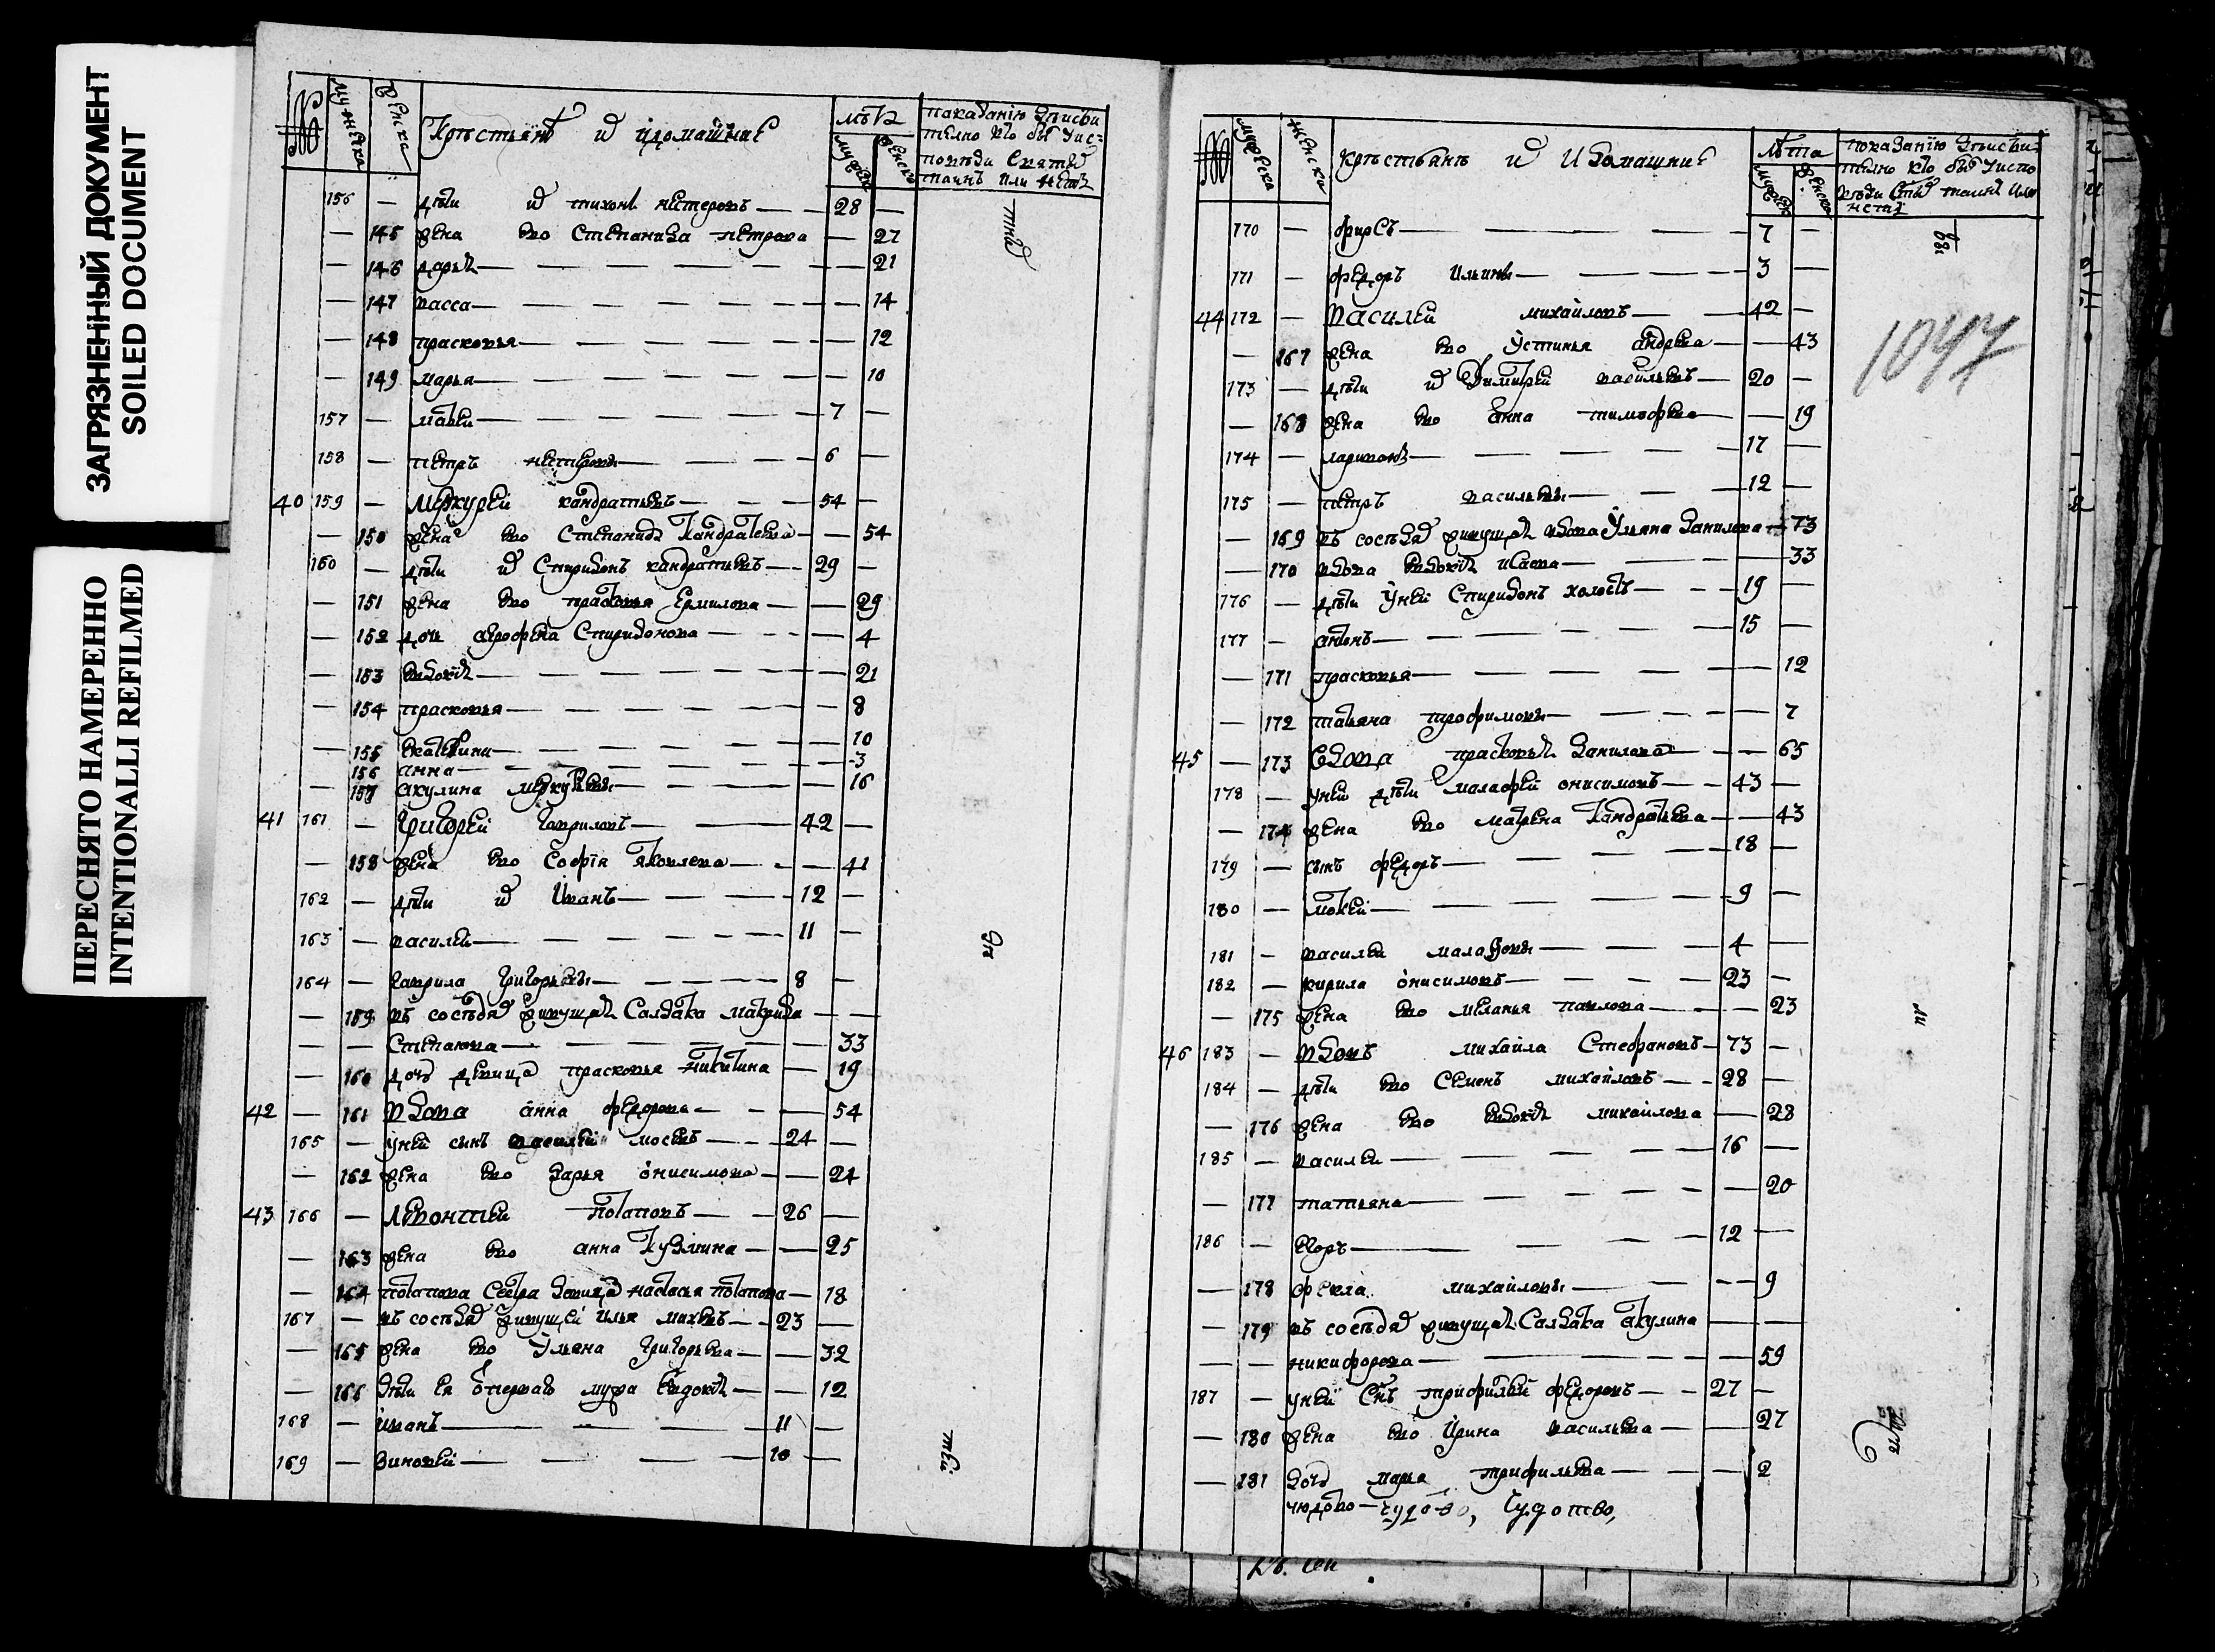 ЗАГРЯЗНЕННЫЙ ДОКУМЕНТ
SOILED DOCUMENT
ПЕРЕСНЯТО НАМЕРЕННО
INTENTIONALLI REFILMED
№ мужеска женска Крестьянѣ и ихдомашние мужеск женскъ
156 — дѣти их тихонъ нестеровъ — 28 —
— 145 жена ево Степанида петрова — 27
— 146 дарья — 21
— 147 васса — 14
— 148 прасковья — 12
— 149 марья — 10
157 — 7 —
158 — петръ нестеровы — 6 —
40 159 — Меркурей кандратьевъ — 54 —
— 150 жена ево Степанида Кандратьева — 54
160 — дѣти их Спиридонъ кандратьевъ — 29 —
— 151 жена ево прасковья Ермилова — 29
— 152 дочь Спиридонова — 4
— 153 евдокия — 21
— 154 прасковья — 8
— 155 екатерина — 10
156 анна — 3
— 157 акулина меркурьевы — 16
41 161 — Григорей гавриловъ — 42 —
— 158 жена ево Софія яковлева — 41
162 — дѣти их Иванъ — 12 —
163 — василей — 11 —
164 — гаврила григорьевы — 8 —
— 159 въ сосѣдях живущая Салдатка макрида —
— — Степанова — 33
— 160 дочь девица прасковья никитина — 19
42 — 161 вдова анна федорова — 54
165 — уней сынъ василей мосеевъ — 24 —
— 162 жена ево дарья онисимова — 24
43 166 — Леонтей потаповъ — 26 —
— 163 жена ево анна Кузмина — 25
— 164 потапова Сестра девица настасья потапова — 18
167 — въ сосѣдях живущей илья михеевъ — 23 —
— 165 жена ево Ульяна григорьева — 32
— 166 дѣти ея отперваго мужа Евдокия — 12
168 — иванъ — 11 —
169 — Зиновей — 10 —
№ мужеска женска крестьянъ и ихдомашние лѣта мужеск женска
170 — фирсъ — 7 —
171 — федоръ ильины — 3 —
44 172 — василей михайловъ — 42 —
— 167 жена ево Устинья андреева — 43
173 — дѣти их Димитрей васильевъ — 20 —
— 168 жена ево анна тимофеева — 19
174 — ларивонъ — 17 —
175 — петръ васильевы — 12 —
— 169 въ сосѣдях живущая вдова Ульяна данилова — 73
— 170 вдова евдокия исаева — 33
176 — дѣти уней Спиридонъ холостъ — 19 —
177 — антонъ — 15 —
— 171 прасковья — 12
— 172 татьяна трофимовы — 7
45 — 173 вдова прасковья данилова — 65
178 — уней дѣти малафей онисимовъ — 43 —
— 174 жена ево матрена Кандратьева — 43
179 — сынъ федоръ — 18 —
180 — мокей — 9 —
181 — василей малафеевы — 4 —
182 — кирила онисимовъ — 23 —
— 175 жена ево меланья павлова — 23
46 183 — вдовъ михайла Стефановъ — 73 —
184 — дѣти ево Семенъ михайловъ — 28 —
— 176 жена ево евдокия михайлова — 28
185 — василей — 16 —
— 177 татьяна — 20
186 — егоръ — 12 —
— 178 фекла михайловы — 9
— 179 въ сосѣдях живущая Салдатка акулина —
— — никифорова — 59
187 — уней Снъ трифилей федоровъ — 27 —
— 180 жена ево Ирина васильева — 27
— 181 дочь марья трифильева — 2
1047